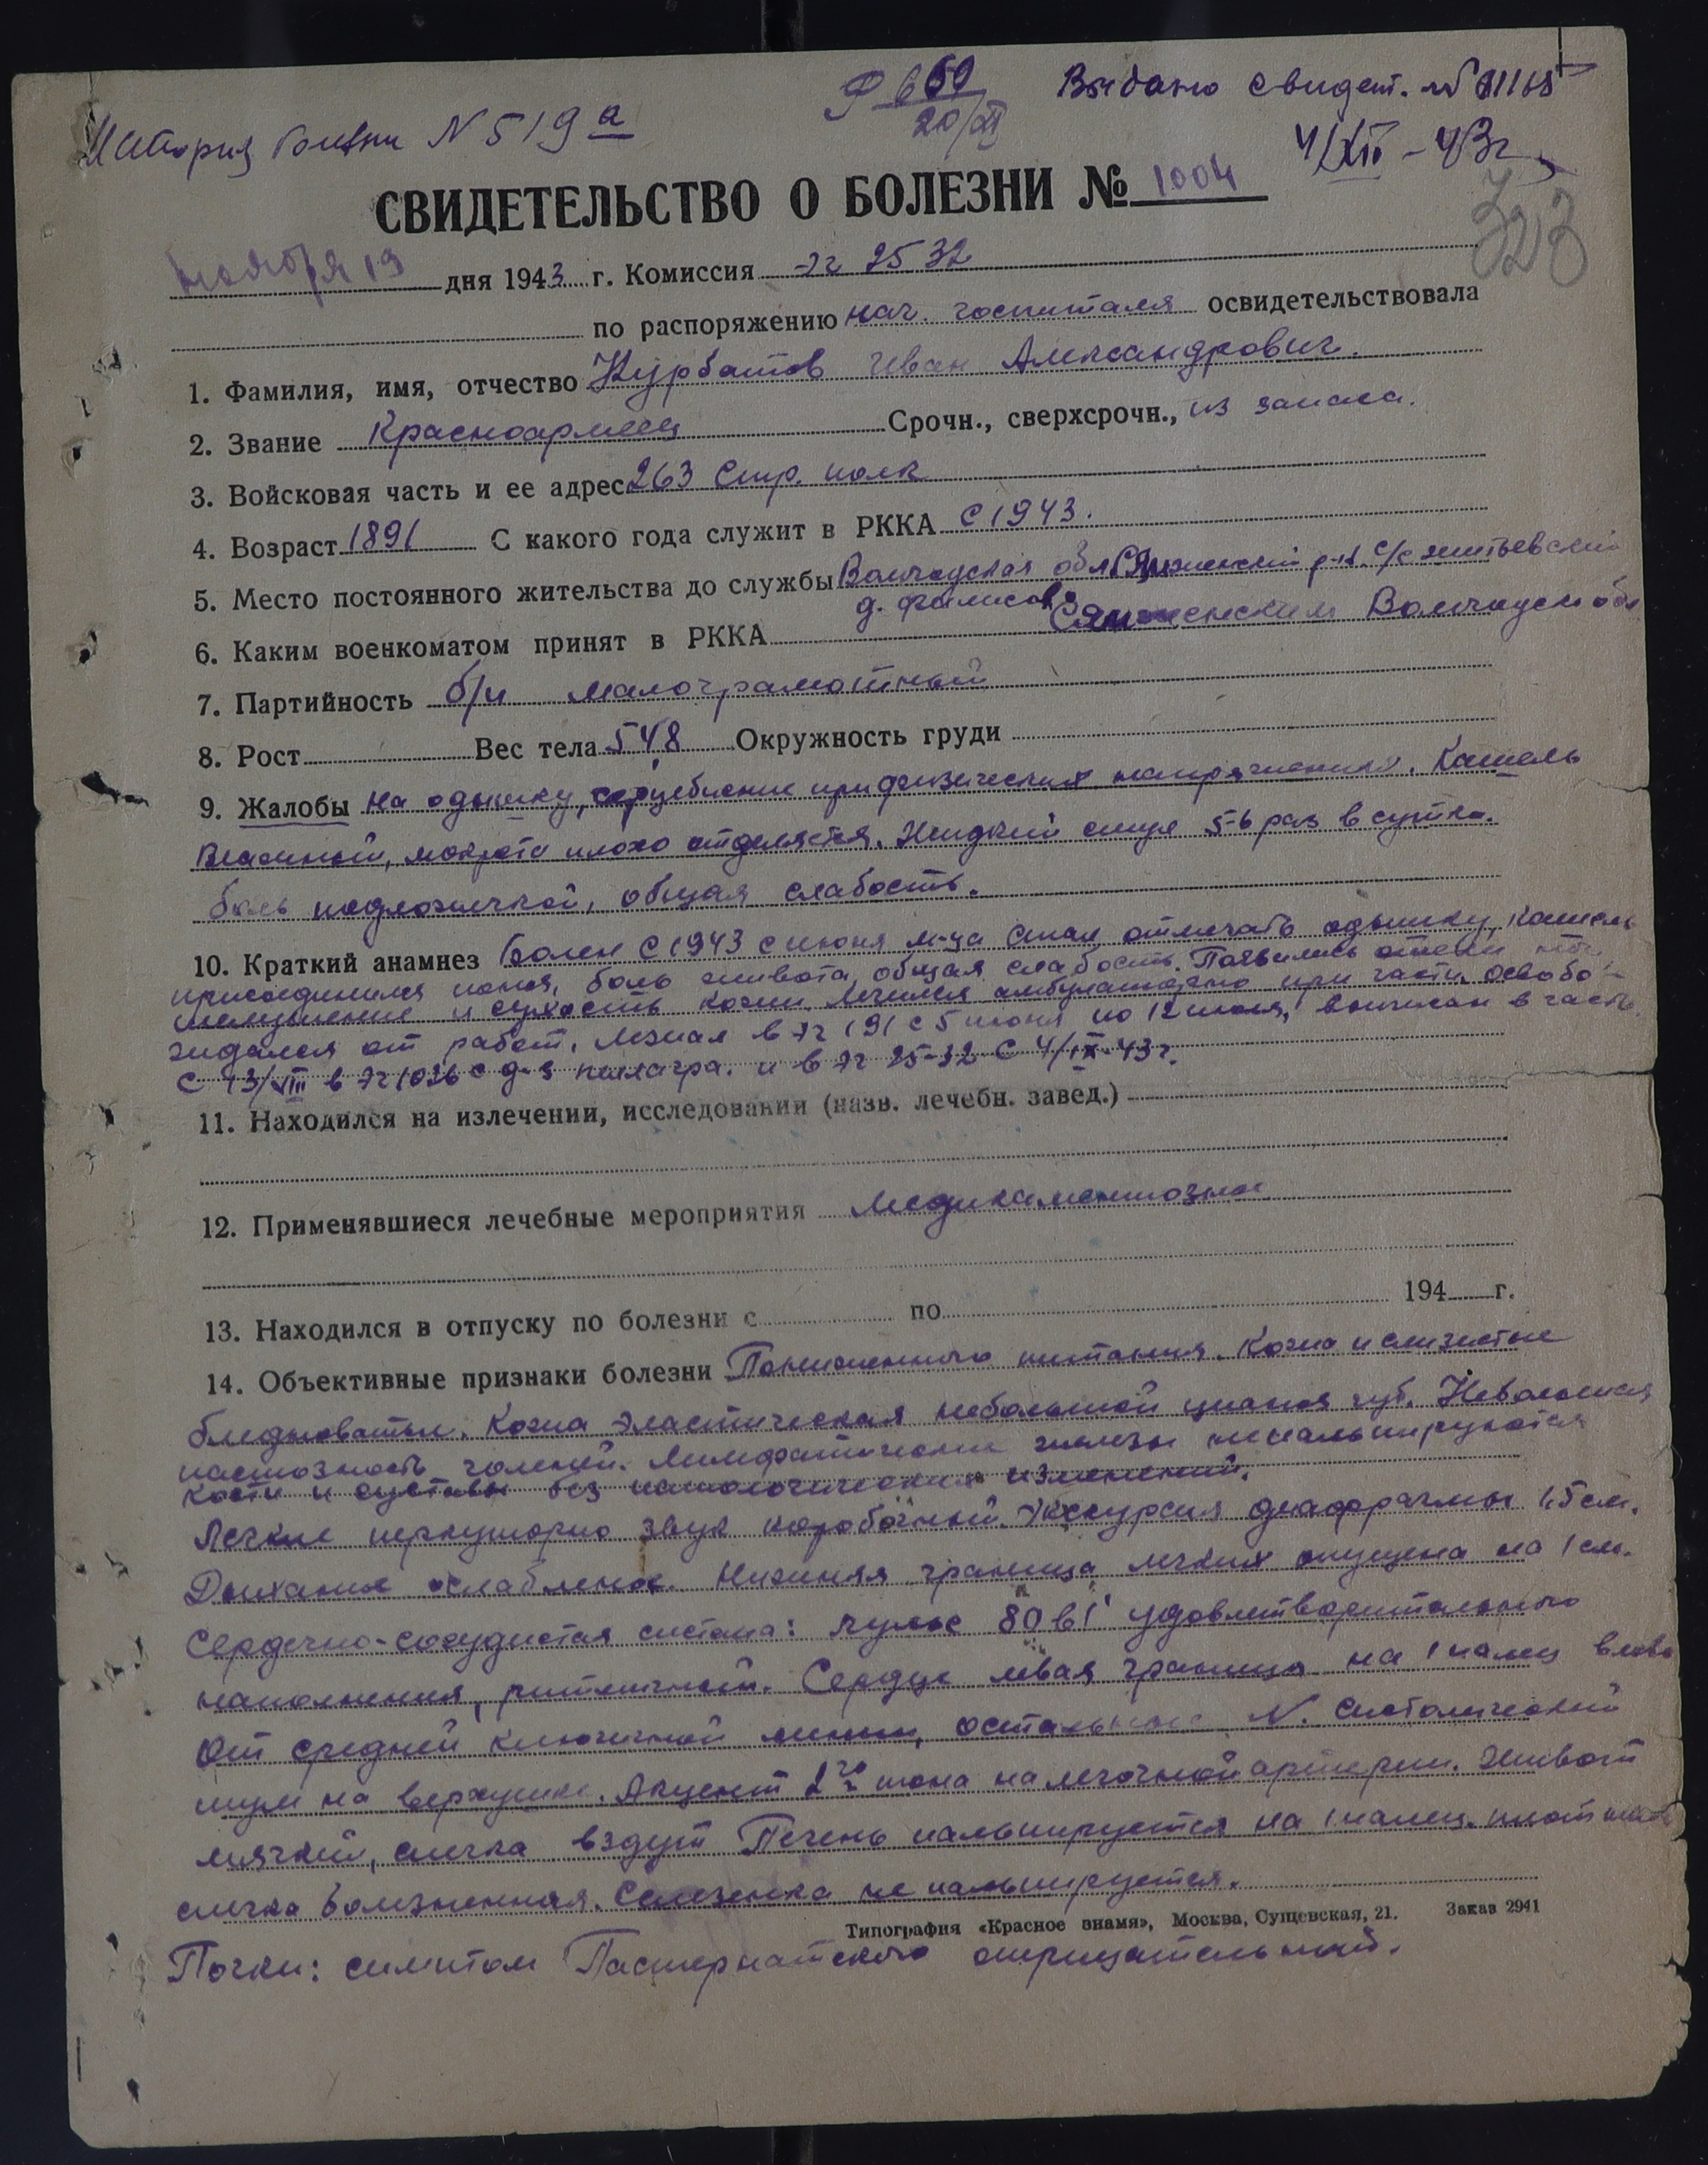 История болезни N 519 а
Р 659
20/XI
Выдано свидет. №
4/XII – 43г
323
СВИДЕТЕЛЬСТВО О БОЛЕЗНИ № 1004
ноября 19 дня 1943 г. Комиссия эг 2532
по распоряжению нач. госпиталя освидетельствовала
1. Фамилия, имя, отчество Курбатов Иван Александрович.
2. Звание Красноармеец Срочн., сверхсрочн., из запаса.
3. Войсковая часть и ее адрес 263 Стр. полк
4. Возраст 1891 С какого года служит в РККА С 1943.
5. Место постоянного жительства до службы Вологодская обл. Сямженский р-н. с/с
д.
6. Каким военкоматом принят в РККА Сямженским Вологодск обл
7. Партийность б/п малограмотный
8. Рост Вес тела 54,8 Окружность груди
9. Жалобы на одышку, сердцебиение при физических напряжениях. Кашель
влажный, мокрота плохо отделяется. Жидкий стул 5-6 раз в сутки.
боль подложечкой, общая слабость.
10. Краткий анамнез Болен с 1943 с июня м-ца стал отмечать одышку, кашель
присоединился понос, боль живота, общая слабость. Появились отеки ног
шелушение и сухость кожи. Лечился амбулаторно при части освобо-
ждался от работ. Лежал в эг 191 с 5 июня по 12 июля, выписан в часть.
С 13/VIII в эг 1036 с д-з пеллагра. и в эг 25-32 с 4/IX-43 г.
11. Находился на излечении, исследовании (назв. лечебн. завед.)
12. Применявшиеся лечебные мероприятия Медикаментозные
13. Находился в отпуску по болезни с по 194 г.
14. Объективные признаки болезни Пониженного питания. Кожа и слизистые
бледноватые. Кожа эластическая небольшой цианоз губ. Небольшая
пастозность голеней. Лимфатические железы не пальпируются
кости и суставы без патологических изменений.
Легкие перкуторно звук коробочный. Экскурсия диафрагмы 1,5 см.
Дыхание ослабленое. Нижняя граница легких опущена на 1 см.
Сердечно-сосудистая система: пульс 80 в 1' удовлетворительного
наполнения, ритмичный. Сердце левая граница на 1 палец влево
от средней ключичной линии, остальные N. Систолический
шум на верхушке. Акцент 2го тона на легочной артерии. Живот
мягкий, слегка вздут Печень пальпируется на 1 палец. плотная
слегка болезненная. Селезенка не пальпируется.
Типография «Красное знамя», Москва, Сущевская, 21. Заказ 2941
Почки: симптом Пастернатского отрицательный.